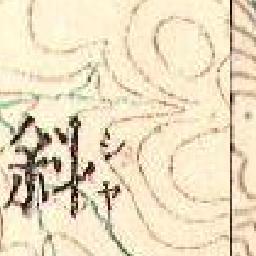 斜
シヤ